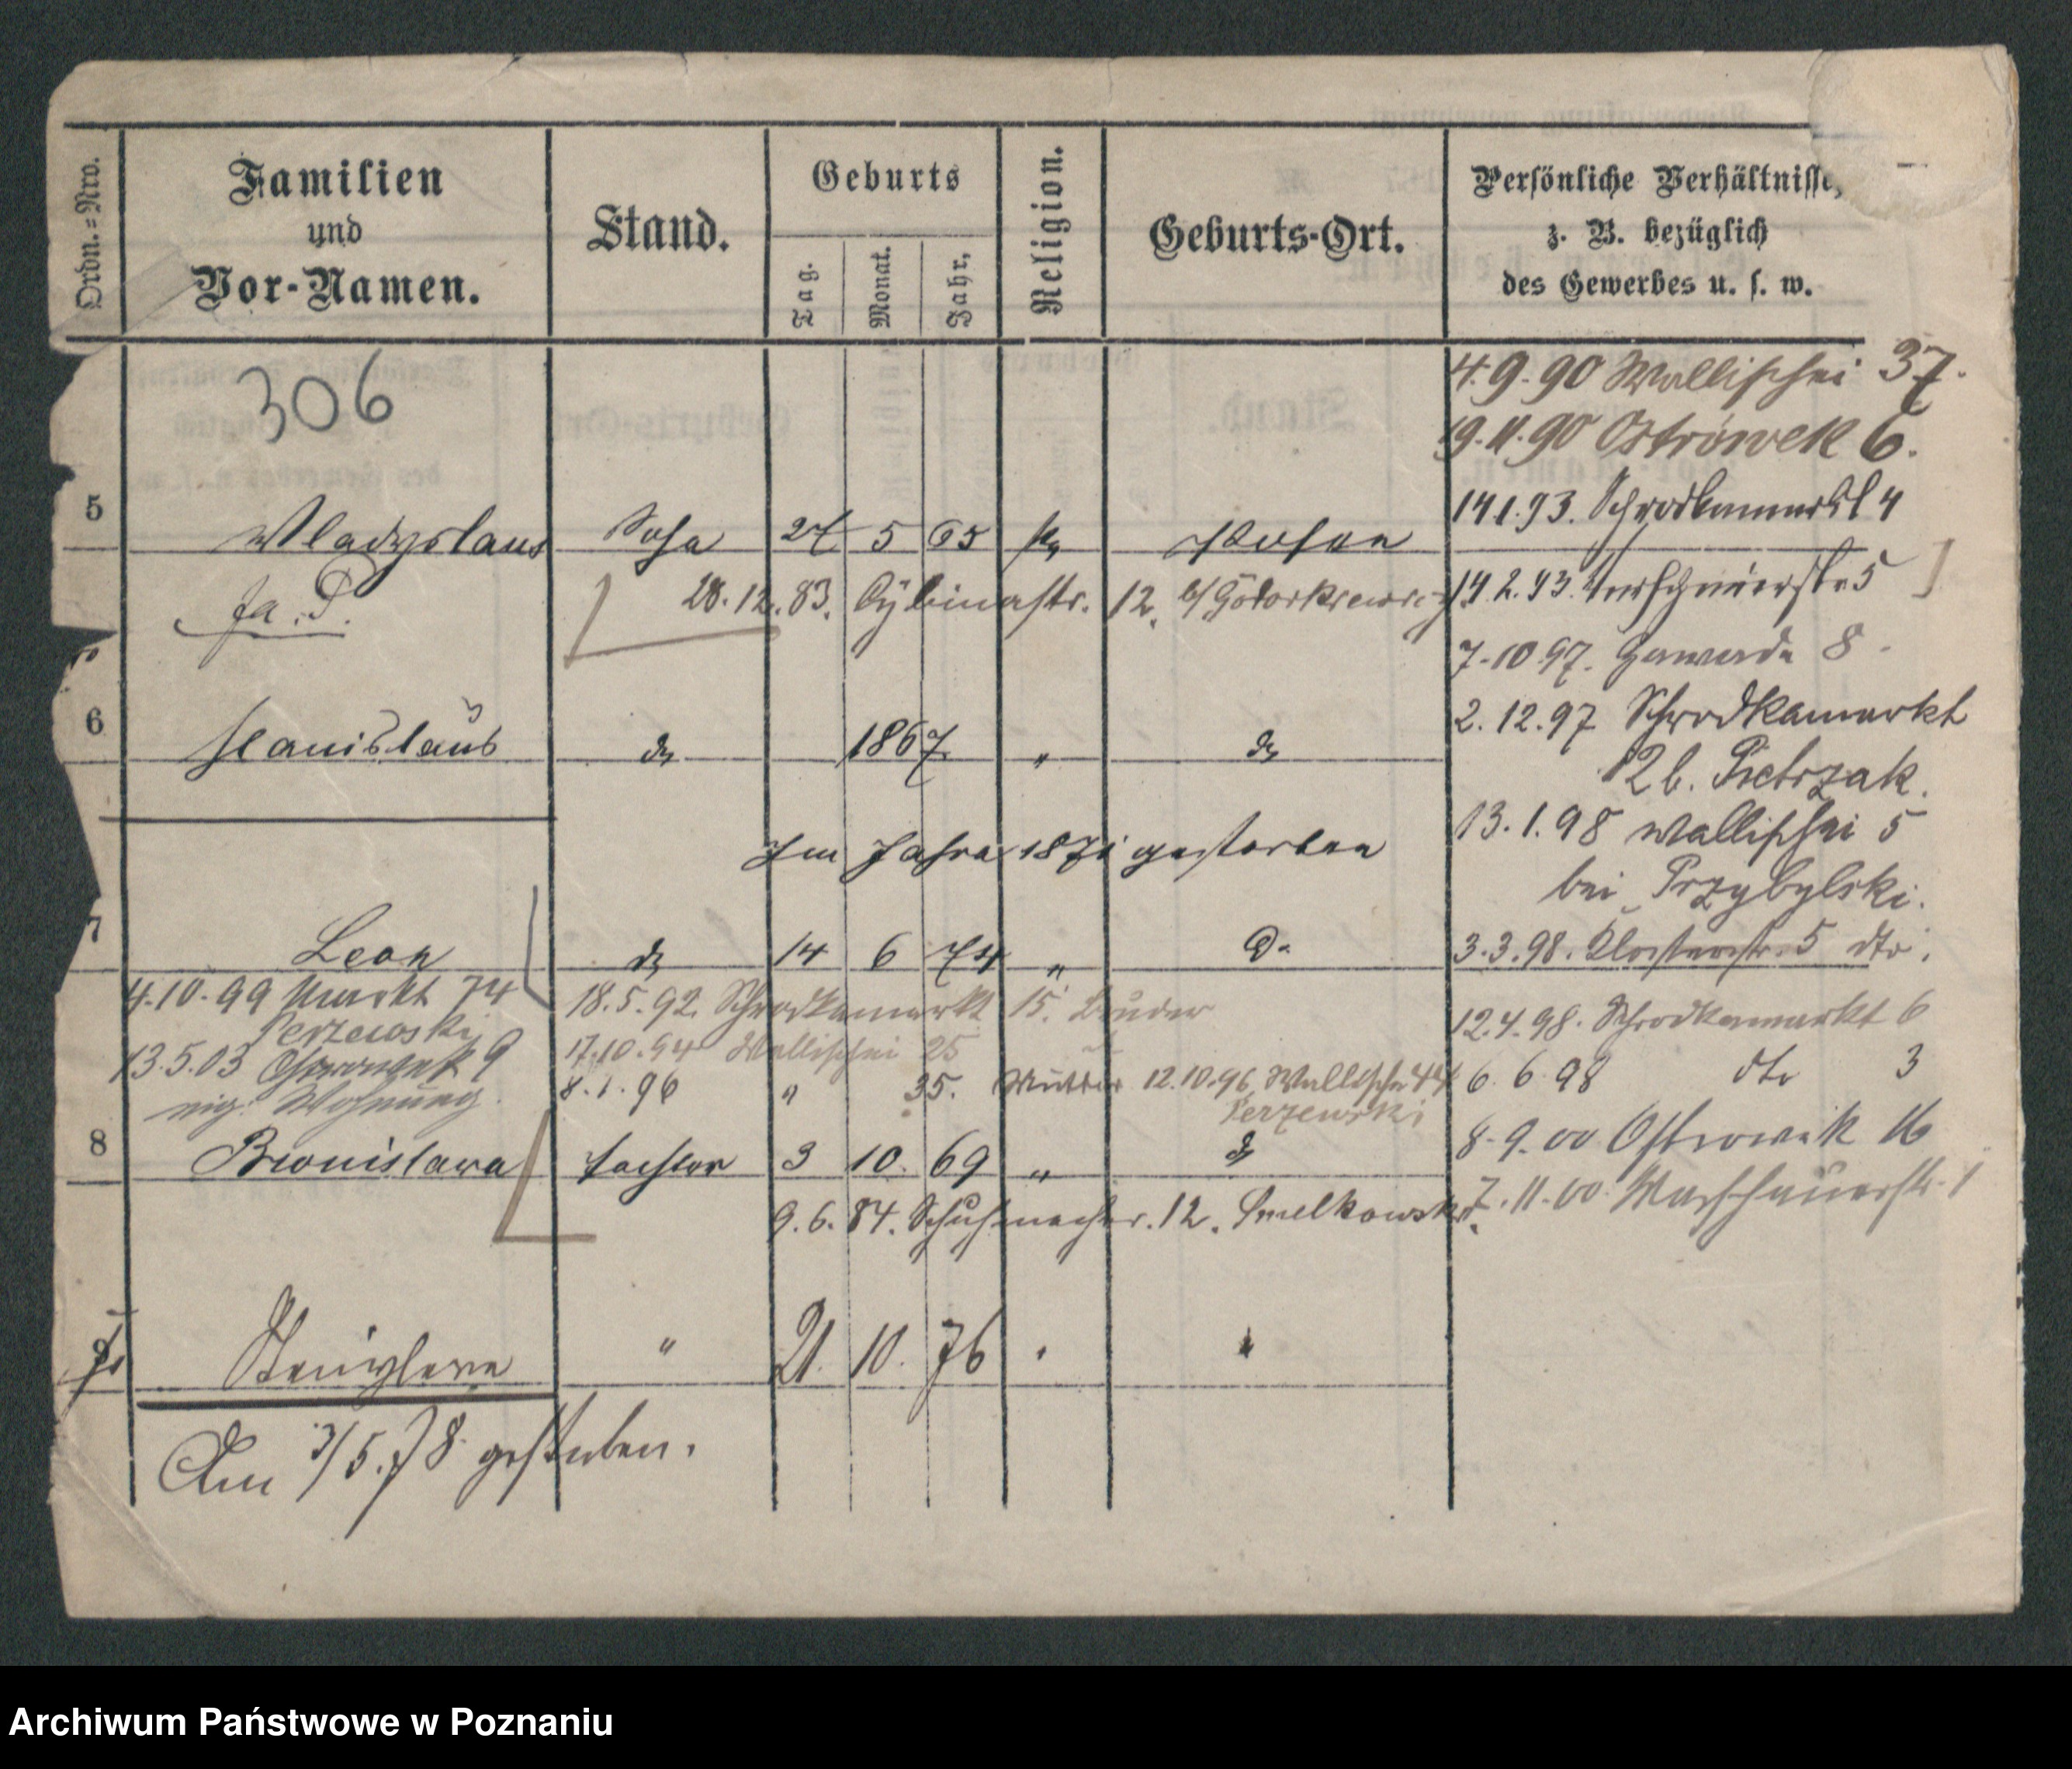 Ordn.=Nro.
Familien
und
Vor-Namen.
Stand.
Geburts
Tag.
Monat.
Jahr.
Religion.
Geburts-Ort.
Persönliche Verhältnisse,
z. B. bezüglich
des Gewerbes u. s. w.
306
4.9.90 Wallischei 37.
19.11.90 Ostrówek 6.
14.1.93. Schrodkamarkt 4
5 Wladyslaus Sohn 27 5 65 k. Posen
28.12.83. Cybinastr. 12.
14.2.93. 5
7.10.97. Zawade 8.
2.12.97 Schrodkamarkt
12 b. Pietrzak.
6 Stanislaus do 1867 " do
13.1.98 Wallischei 5
bei Przybylski.
Im Jahre 1871 gestorben
7 Leon do 14 6 74 " do
3.3.98. Klosterstr. 5 dto.
4.10.99 Markt 74
Perzewski
13.5.03 Ostrowek 9
eig. Wohnung.
18.5.92. Schrodkamarkt 15. Bruder
17.10.94 Wallischei 25
8.1.96 " 35. Mutter 12.10.96 Wallischei 44
Perzewski
12.4.98. Schrodkamarkt 6
6.6.98 dto 3
8.9.00 Ostrowek 16
7.11.00 Warschauerstr. 1
8 Bronislawa Tochter 3 10. 69 " do
9.6.84. Schuhmacherstr. 12. Smelkowski.
9 " 21. 10. 76 " "
Am 3/5.78 gestorben.
Archiwum Państwowe w Poznaniu